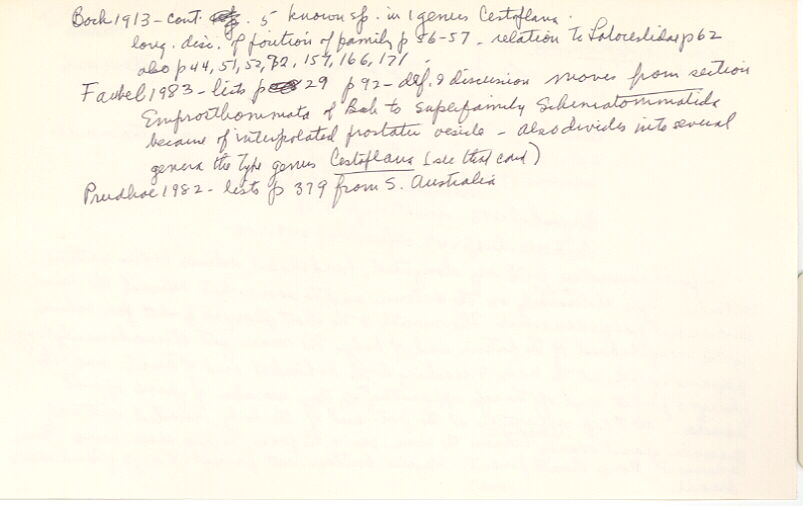 Bock 1913 - cont. p. 5 known sp. in 1 genus Cestoplana.
long. disc. of position of family p 56-57 - relation to Latocestidae p 62
also p 44, 51, 52, 92, 157, 166, 171
Faubel 1983 - lists p 29 p 92 - def. & discussion moves from section
Emprosthommata of Bock to superfamily Schematommatida
because of interpolated prostatic vesicle - also divides into several
genera the type genus Cestoplana (see that card)
Prudhoe 1982 - lists p 379 from S. Australia